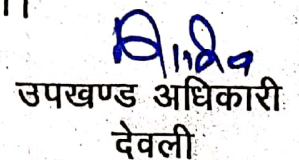 ।।
उपखण्ड अधिकारी
देवली